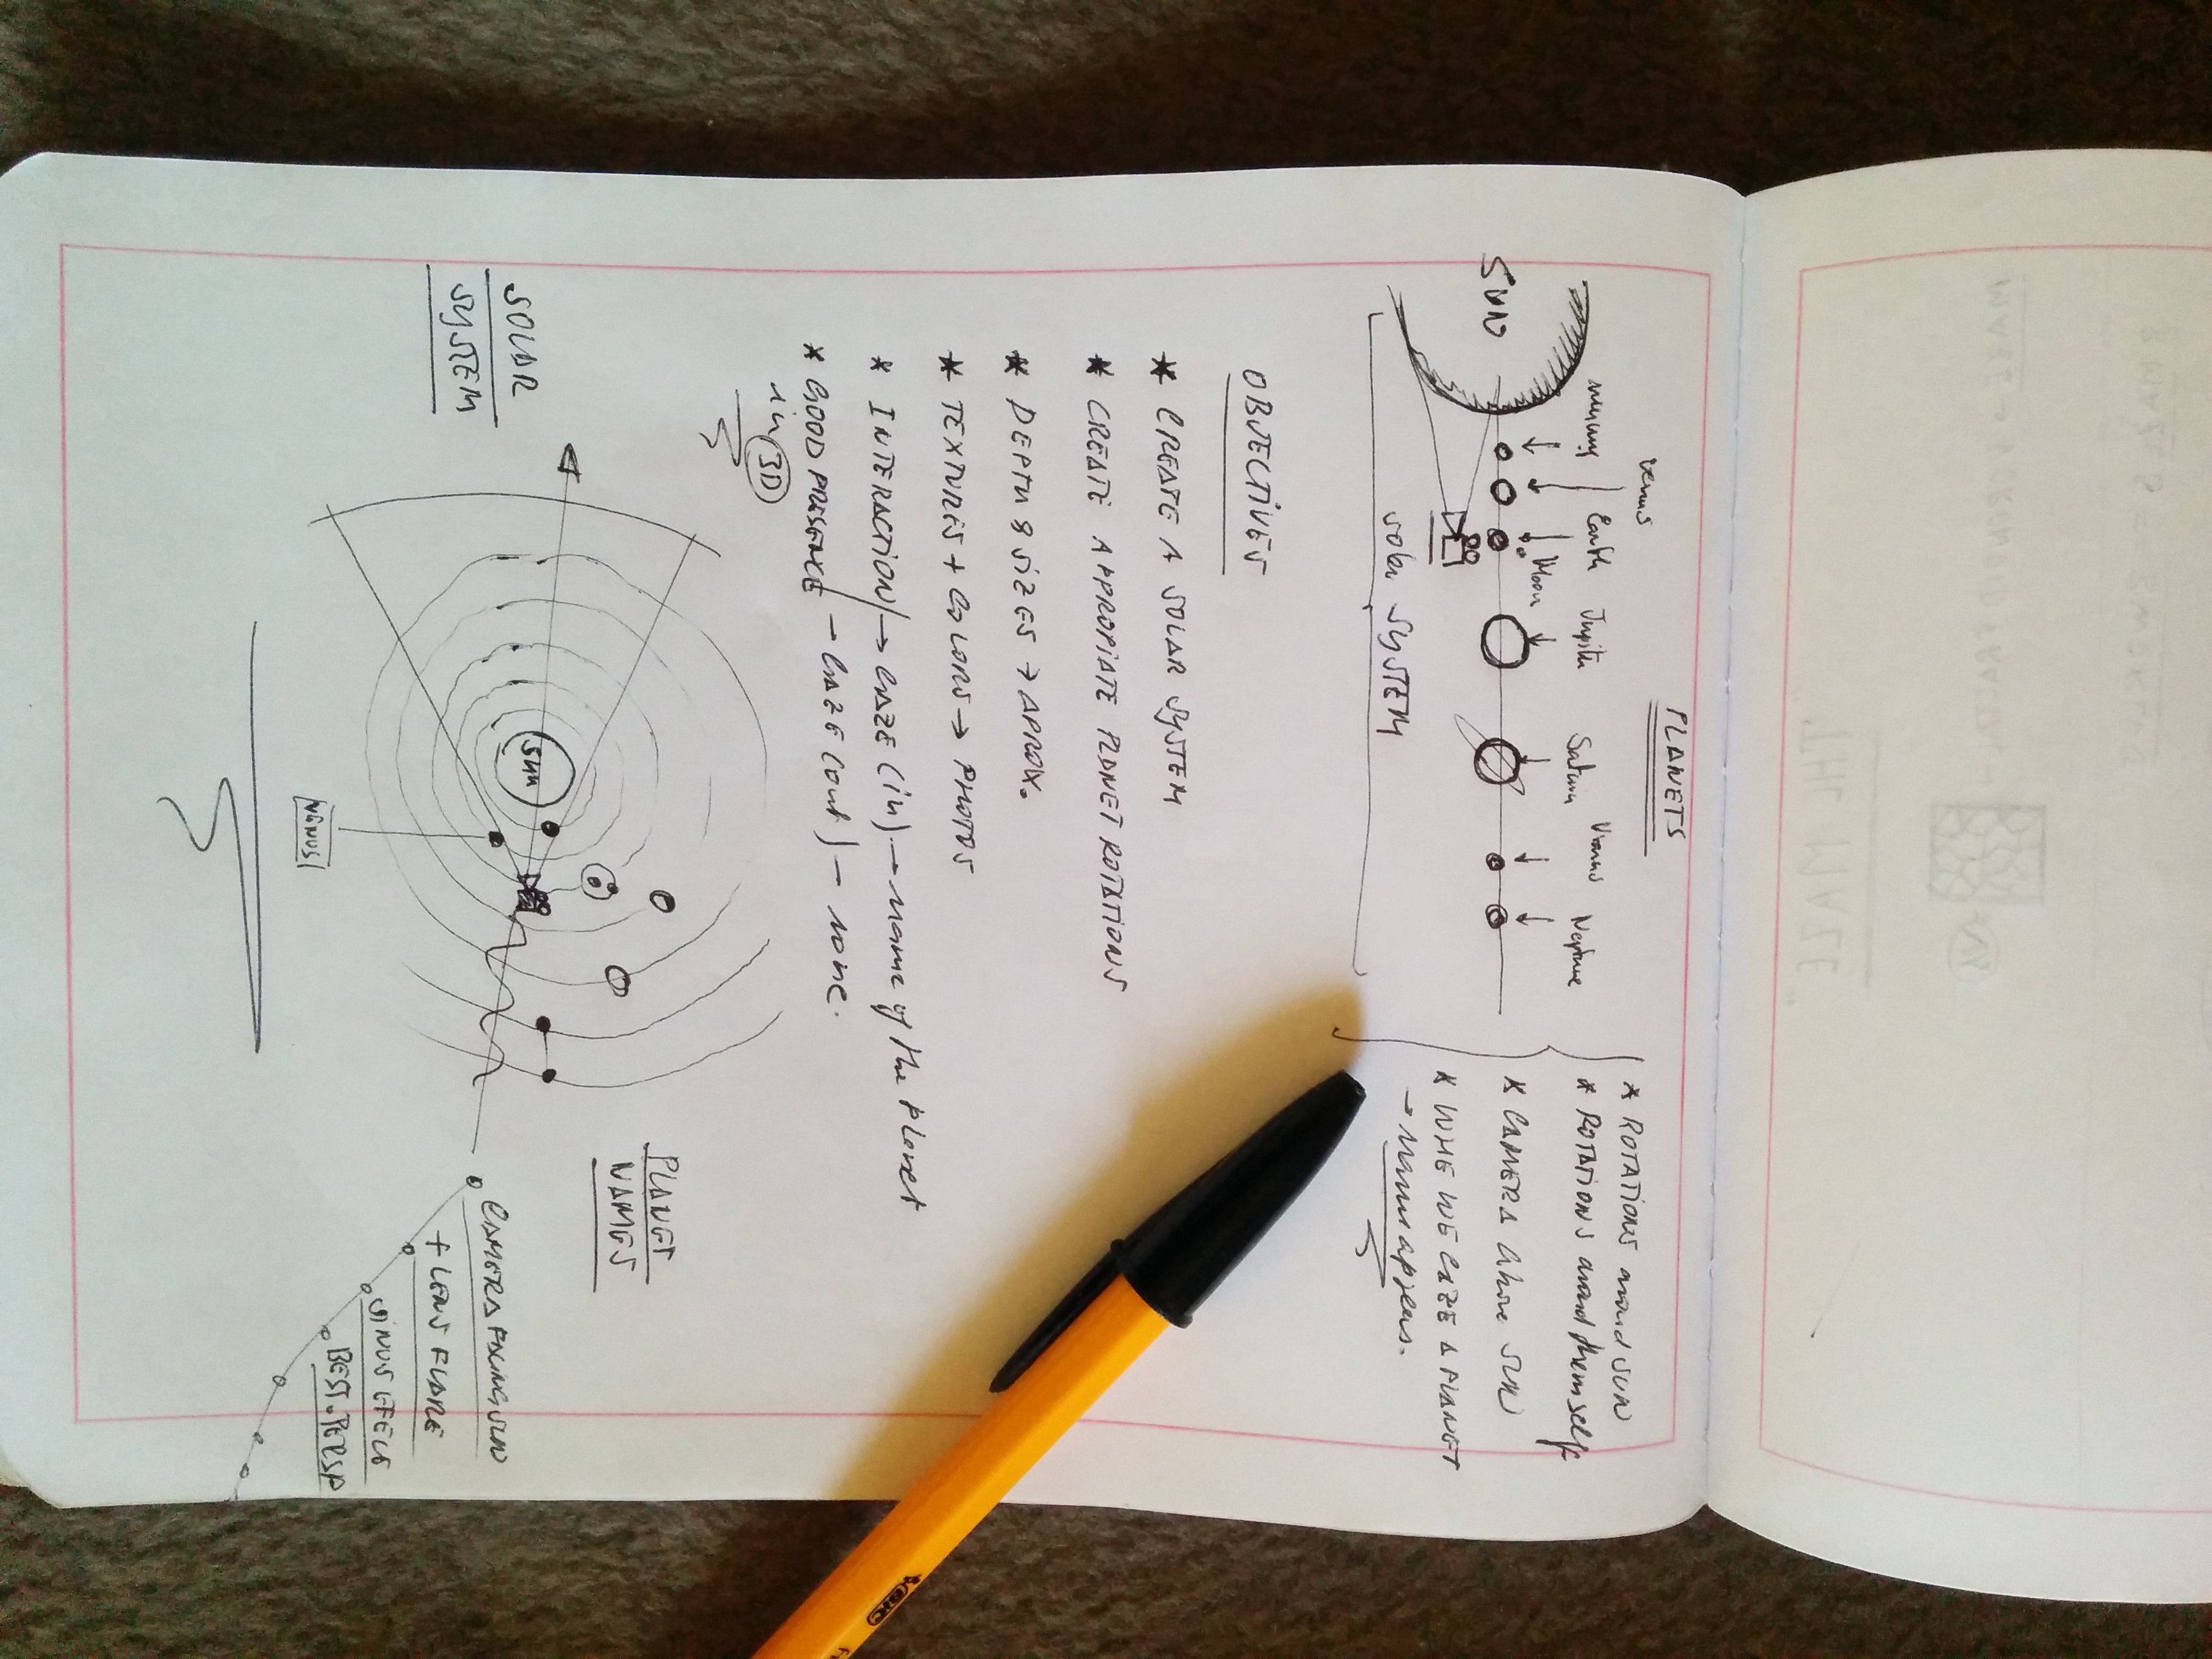 PLANETS
Venus
mercury
Earth
Jupite
Saturn
Uranus
Neptune
Moon
SUN
solar SYSTEM
* ROTATIONS around SUN
* ROTATIONS around themself
* CAMERA
SUN
* WHE WE GAZE A PLANET
→ Name appears.
OBJECTIVES
* CREATE A SOLAR SYSTEM
* CREATE APPROPIATE PLANET ROTATIONS
* DEPTH & SIZES → APROX.
* TEXTURES + COLORS → PHOTOS
* INTERACTION → GAZE (in) → name of the planet
* GOOD PRESENCE → GAZE (out) → none.
in 3D
SOLAR
SYSTEM
SUN
PLANET
NAMES
CAMERA FACING SUN
+ LENS FLARE
BEST.PERSP
BIC